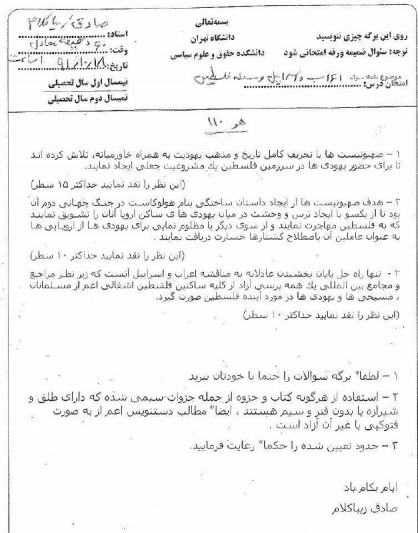 بسمه‌تعالی
دانشگاه تهران
دانشکده حقوق و علوم سیاسی
روی این برگه چیزی ننویسید
توجه: سئوال ضمیمه ورقه امتحانی شود
امتحان درس:
صادق زیباکلام
استاد:
وقت:
تاریخ:
نیمسال اول سال تحصیلی
نیمسال دوم سال تحصیلی
هو ۱۱۰
۱ – صهیونیست ها با تحریف کامل تاریخ و مذهب یهودیت به همراه خاورمیانه، تلاش کرده اند
تا برای حضور یهودی ها در سرزمین فلسطین یك مشروعیت جعلی ایجاد نمایند.
(این نظر را نقد نمایید حداکثر ۱۵ سطر)
۲ – هدف صهیونیست ها از ایجاد داستان ساختگی بنام هولوکاست در جنگ جهانی دوم آن
بود تا از یکسو با ایجاد ترس و وحشت در میان یهودی های ساکن اروپا آنان را تشویق نمایند
که به فلسطین مهاجرت نمایند و از سوی دیگر با مظلوم نمایی برای یهودی ها از اروپایی ها
به عنوان عاملین آن باصطلاح کشتارها خسارت دریافت نمایند .
(این نظر را نقد نمایید حداکثر ۱۰ سطر)
۳ - تنها راه حل پایان بخشیدن عادلانه به مناقشه اعراب و اسراییل آنست که زیر نظر مراجع
و مجامع بین المللی یك همه پرسی آزاد از کلیه ساکنین فلسطین اشغالی اعم از مسلمانان
، مسیحی ها و یهودی ها در مورد آینده فلسطین صورت گیرد.
(این نظر را نقد نمایید حداکثر ۱۰ سطر)
۱ – لطفا" برگه سوالات را حتما با خودتان ببرید
۲ – استفاده از هرگونه کتاب و جزوه از جمله جزوات سیمی شده که دارای طلق و
شیرازه یا بدون فنر و سیم هستند ، ایضا" مطالب دستنویس اعم از به صورت
فتوکپی یا غیر آن آزاد است .
۳ – حدود تعیین شده را حکما" رعایت فرمایید.
ایام بکام باد
صادق زیباکلام